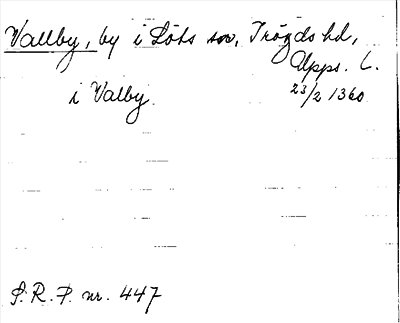 Vallby, by i Löts sn, Trögds hd,
Upps. L.
i Valby. 23/2 1360
S. R. P. nr. 447